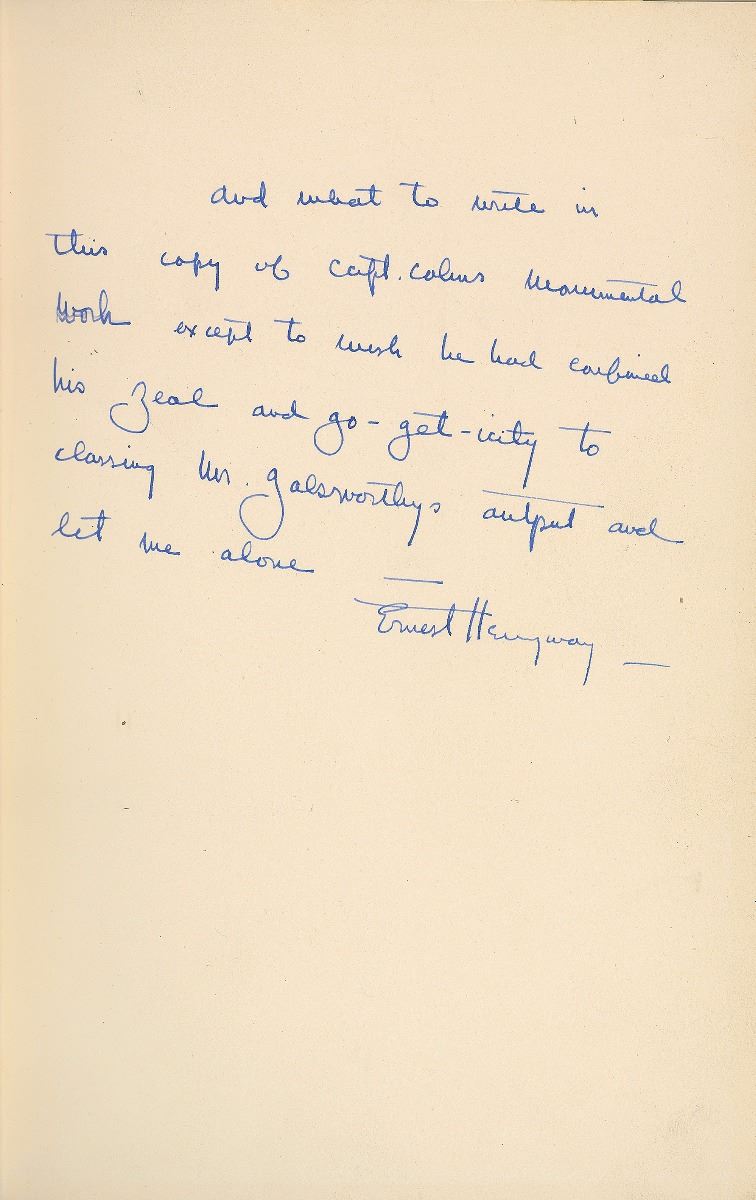 and what to write in
this copy of Capt. Cohns Monumental
Work except to wish he had confined
his zeal and go-get-icity to
classing Mr. Galsworthys output and
let me alone —
Ernest Hemingway —